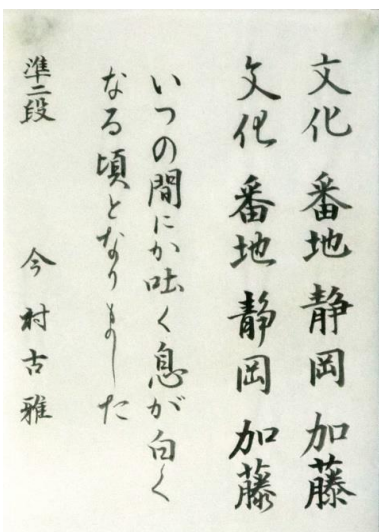 文化 番地 静岡 加藤
文化 番地 静岡 加藤
いつの間にか吐く息が白く
なる頃となりました
準二段 今村古雅